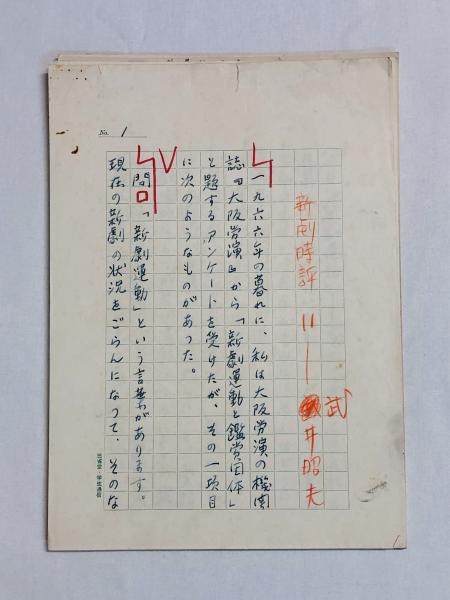 新劇時評 11 武井昭夫
一九六六年の暮れに、私は大阪労演の機関
誌『大阪労演』から「新劇運動と鑑賞団体」
と題するアンケートを受けたが、その一項目
に次のようなものがあった。
問「新劇運動」という言葉があります。
現在の新劇の状況をごらんになって、そのな
No. 1
1